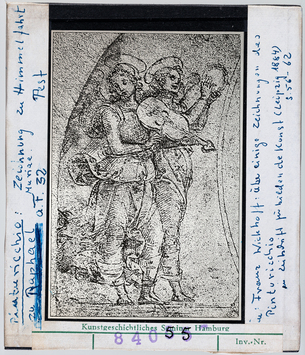 Pinturicchio: Zeichnung zu Himmelfahrt
Mariae
zu Raphael
a F 32
Pest
in: Franz Wickhoff: Über einige Zeichnungen des
Pinturicchio
Zeitschrift für bildende Kunst (Leipzig 1884)
S. 56-62
Kunstgeschichtliches Seminar Hamburg
84055
Inv.-Nr.